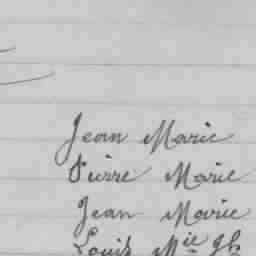 Jean Marie
Pierre Marie
Jean Marie
Louis Mie Jh